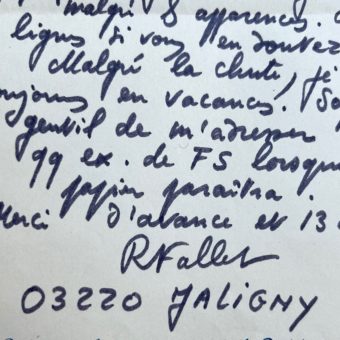 malgré 8 apparences.
lignes si vous en doutez
Malgré la chute, je
toujours en vacances!
gentil de m'adresser
qq ex. de FS lorsque
papier paraîtra.
Merci d'avance et 13
RFallet
03220 JALIGNY